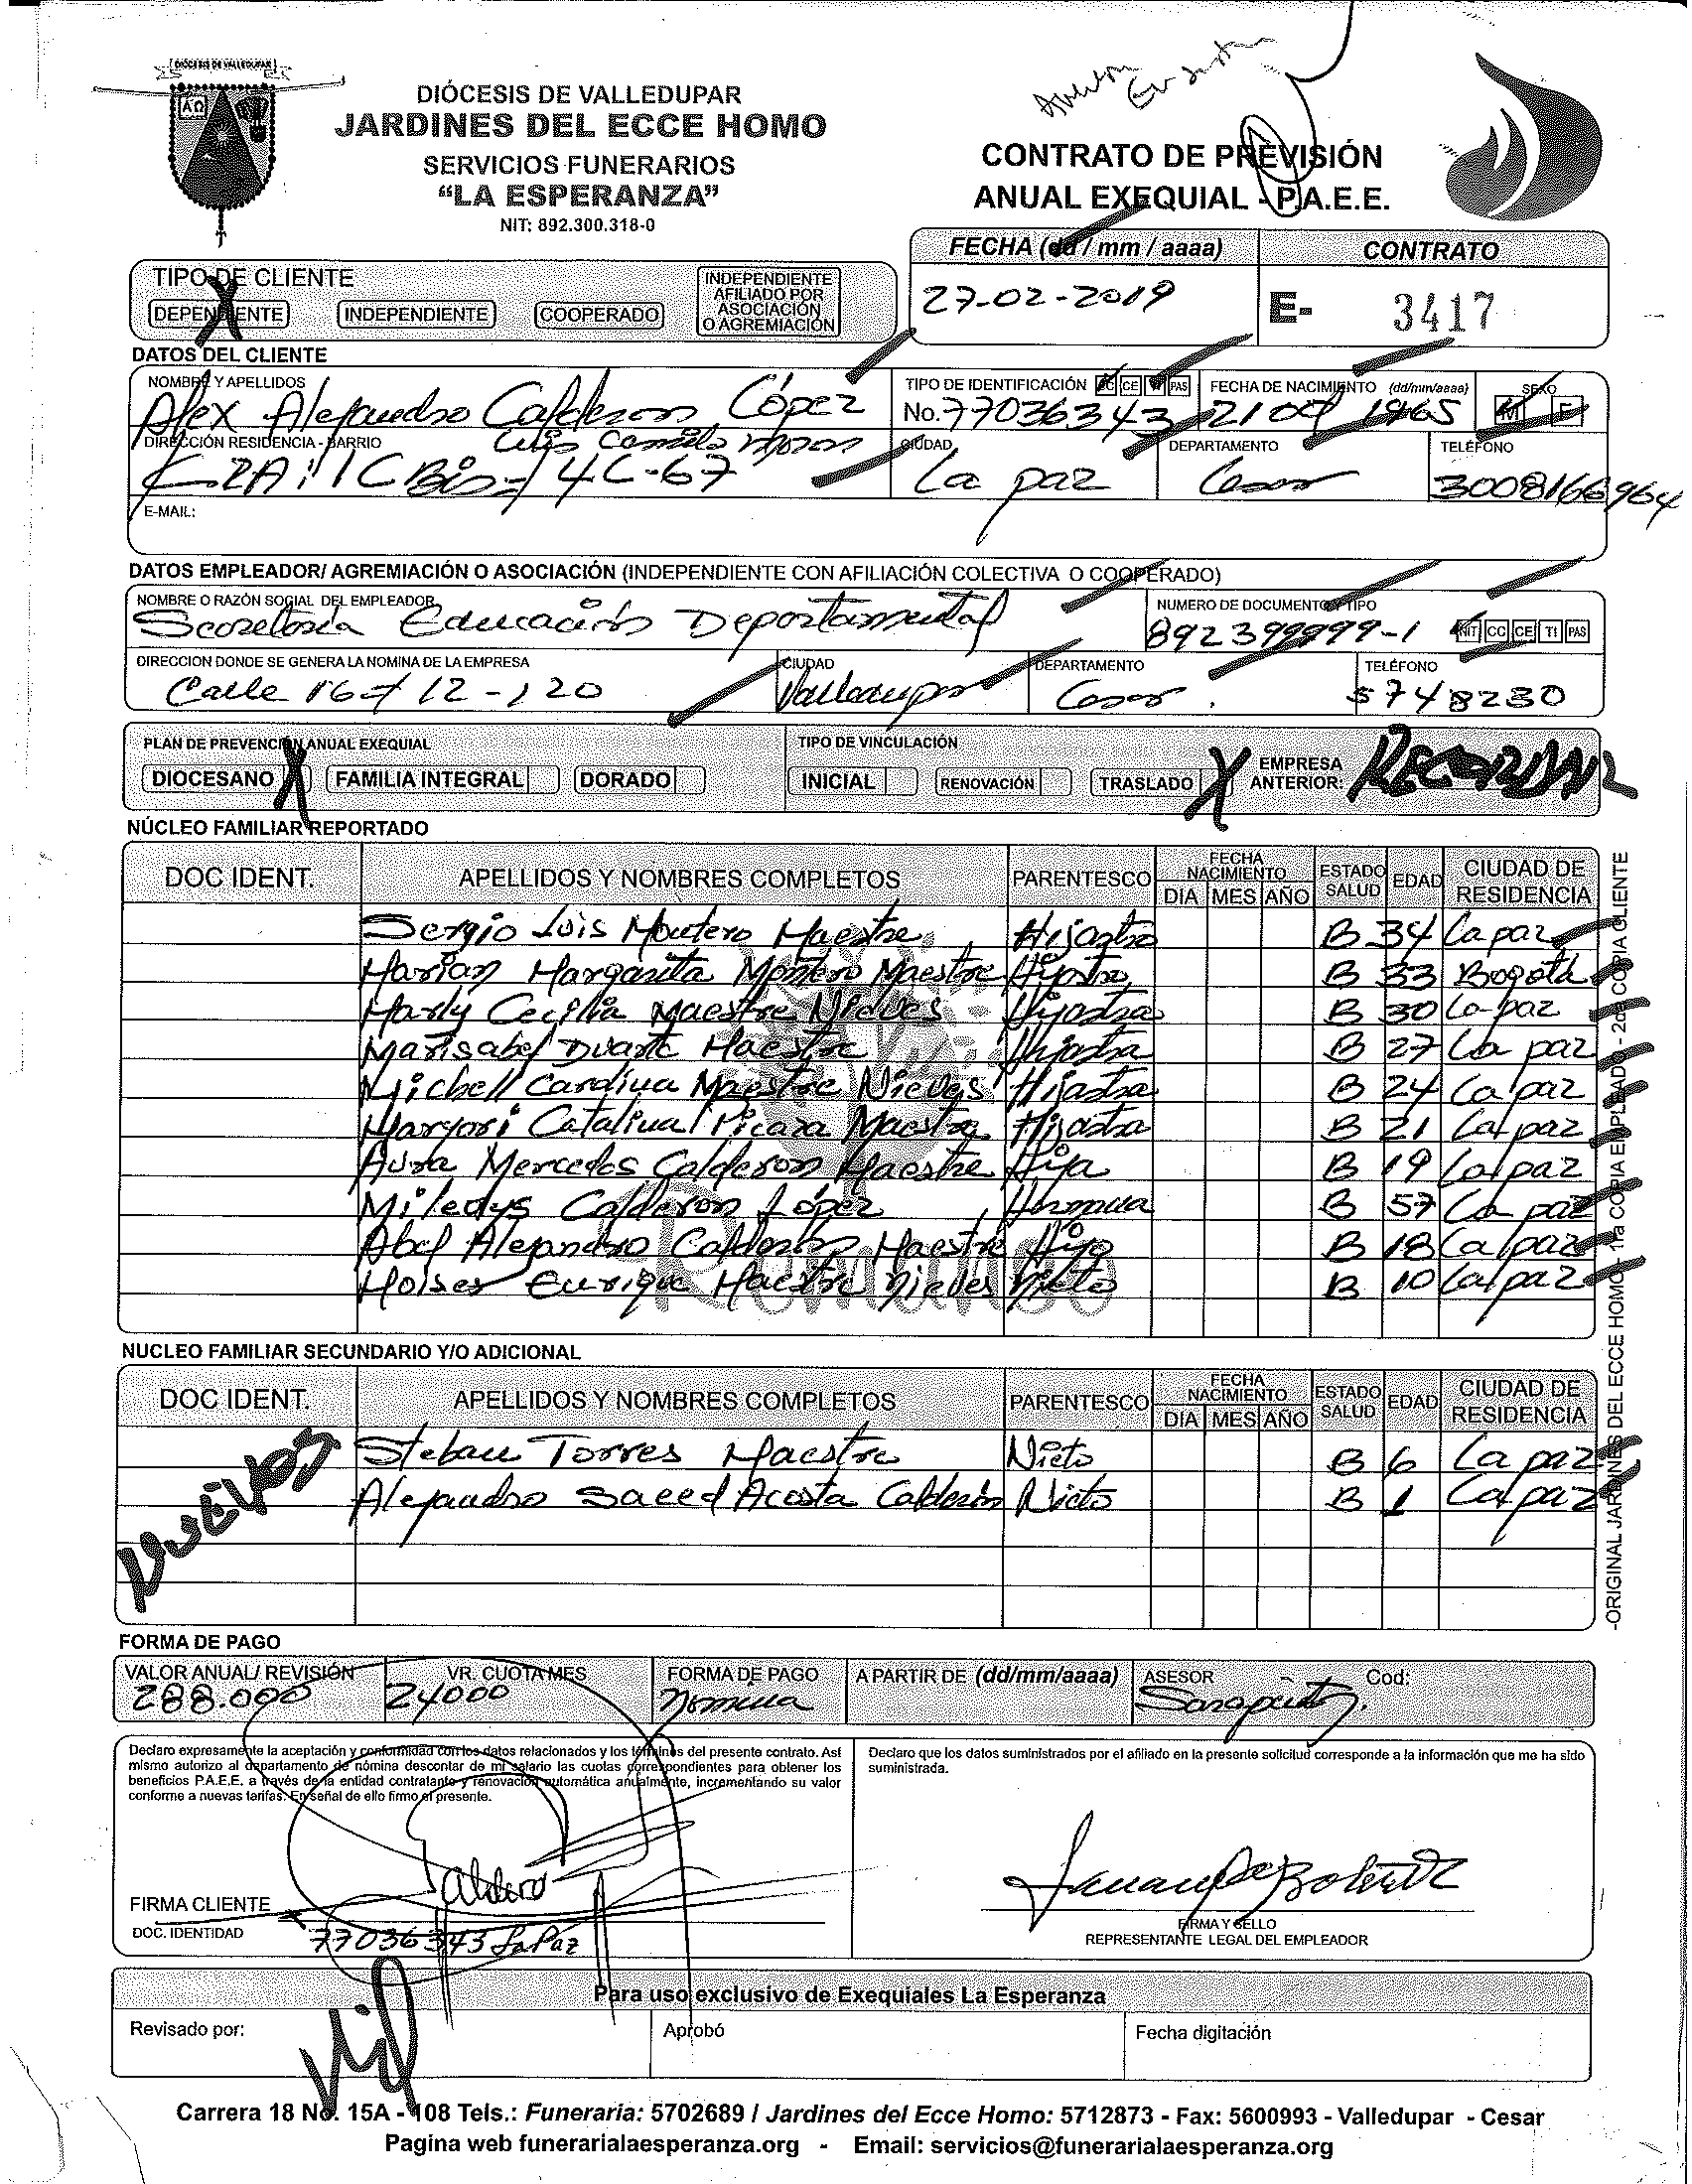 DIÓCESIS DE VALLEDUPAR
DIÓCESIS DE VALLEDUPAR
JARDINES DEL ECCE HOMO
SERVICIOS FUNERARIOS
“LA ESPERANZA”
NIT: 892.300.318-0
CONTRATO DE PREVISIÓN
ANUAL EXEQUIAL - P.A.E.E.
FECHA (dd / mm / aaaa) CONTRATO
27-02-2019 E- 3417
TIPO DE CLIENTE
DEPENDIENTE INDEPENDIENTE COOPERADO INDEPENDIENTE AFILIADO POR ASOCIACIÓN O AGREMIACIÓN
DATOS DEL CLIENTE
NOMBRE Y APELLIDOS TIPO DE IDENTIFICACIÓN CC CE TI PAS FECHA DE NACIMIENTO (dd/mm/aaaa) SEXO
Alex Alejandro Calderon López No. 77036343 2109 1965 M F
DIRECCIÓN RESIDENCIA - BARRIO CIUDAD DEPARTAMENTO TELÉFONO
KRA: 11C Bis # 4C-67 La paz Cesar 3008166964
E-MAIL:
DATOS EMPLEADOR/ AGREMIACIÓN O ASOCIACIÓN (INDEPENDIENTE CON AFILIACIÓN COLECTIVA O COOPERADO)
NOMBRE O RAZÓN SOCIAL DEL EMPLEADOR NUMERO DE DOCUMENTO Y TIPO
Secretaria Educación Departamental 892399999-1 NIT CC CE TI PAS
DIRECCION DONDE SE GENERA LA NOMINA DE LA EMPRESA CIUDAD DEPARTAMENTO TELÉFONO
Calle 16 # 12-120 Valledupar Cesar. 5748230
PLAN DE PREVENCIÓN ANUAL EXEQUIAL TIPO DE VINCULACIÓN
DIOCESANO X FAMILIA INTEGRAL DORADO INICIAL RENOVACIÓN TRASLADO X EMPRESA ANTERIOR:
NÚCLEO FAMILIAR REPORTADO
DOC IDENT. APELLIDOS Y NOMBRES COMPLETOS PARENTESCO FECHA NACIMIENTO DIA MES AÑO ESTADO SALUD EDAD CIUDAD DE RESIDENCIA
Sergio Luis Montero Maestre Hijastro B 34 La paz
Marian Margarita Montero Maestre Hijastra B 33 Bogotá
Marly Cecilia Maestre Nieves Hijastra B 30 La paz
Marisabel Duarte Maestre Hijastra B 27 La paz
Michell Carolina Maestre Nieves Hijastra B 24 La paz
Maryori Catalina Picaza Maestre Hijastra B 21 La paz
Aura Mercedes Calderon Maestre Hija B 19 La paz
Miledys Calderon López Hermana B 57 La paz
Abel Alejandro Calderon Maestre Hijo B 18 La paz
Moises Enrique Maestre Nieves Nieto B 10 La paz
NUCLEO FAMILIAR SECUNDARIO Y/O ADICIONAL
DOC IDENT. APELLIDOS Y NOMBRES COMPLETOS PARENTESCO FECHA NACIMIENTO DIA MES AÑO ESTADO SALUD EDAD CIUDAD DE RESIDENCIA
Steban Torres Maestre Nieto B 6 La paz
Alejandro Saeed Acosta Calderón Nieto B 1 La paz
Nuevos
-ORIGINAL JARDINES DEL ECCE HOMO - 1ra COPIA EMPLEADO - 2da COPIA CLIENTE
FORMA DE PAGO
VALOR ANUAL/ REVISIÓN VR. CUOTA MES FORMA DE PAGO A PARTIR DE (dd/mm/aaaa) ASESOR Cod:
288.000 24000 Nomina
Declaro expresamente la aceptación y conformidad con los datos relacionados y los términos del presente contrato. Así
mismo autorizo al departamento de nómina descontar de mi salario las cuotas correspondientes para obtener los
beneficios P.A.E.E. a través de la entidad contratante y renovación automática anualmente, incrementando su valor
conforme a nuevas tarifas. En señal de ello firmo el presente.
Declaro que los datos suministrados por el afiliado en la presente solicitud corresponde a la información que me ha sido
suministrada.
FIRMA CLIENTE
DOC. IDENTIDAD 77036343 La Paz
FIRMA Y SELLO
REPRESENTANTE LEGAL DEL EMPLEADOR
Para uso exclusivo de Exequiales La Esperanza
Revisado por: Aprobó Fecha digitación
Carrera 18 No. 15A - 108 Tels.: Funeraria: 5702689 / Jardines del Ecce Homo: 5712873 - Fax: 5600993 - Valledupar - Cesar
Pagina web funerarialaesperanza.org - Email: servicios@funerarialaesperanza.org